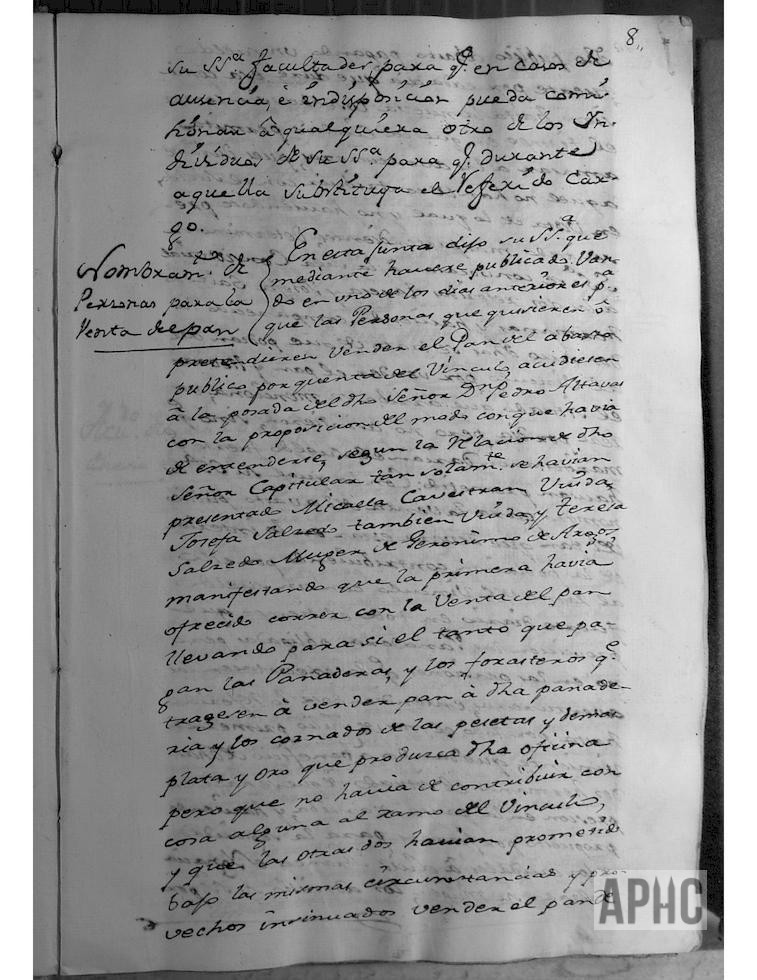 8,,
su SSª facultades para q.e en casos de
ausencia, è indisposicion pueda comi-
sionar â qualquiera otro de los In-
dividuos de su SSª para q.e durante
aquella substituya el referido Car-
go.
Nombram.to de
Personas para la
Venta del pan
En esta Junta dijo su SSª que
mediante haverse publicado Van-
do en uno de los dias anteriores pª
que las Personas que quisieren ô
pretendieren vender el Pan del abasto
publico por quenta del Vinculo acudiesen
â la posada del dho Señor Dn Pedro Altavas
con la proposicion del modo con que havia
de entenderse, segun la Relacion de dho
Señor Capitular tan solam.te se havian
presentado Micaela Cavestran Viuda,
Josefa Salzedo tambien Viuda, y Teresa
Salzedo Muger de Geronimo de
manifestando que la primera havia
ofrecido correr con la Venta del pan
llevando para si el tanto que pa-
gan las Panaderas, y los forasteros q.e
tragesen â vender pan â dha panade-
ria y los cornados de las pesetas y demas
plata y Oro que produzca dha oficina
pero que no havia de contribuir con
cosa alguna al ramo del Vinculo,
y que las otras dos havian prometido
bajo las mismas circunstancias y pro-
vechos insinuados vender el pan de
APHC